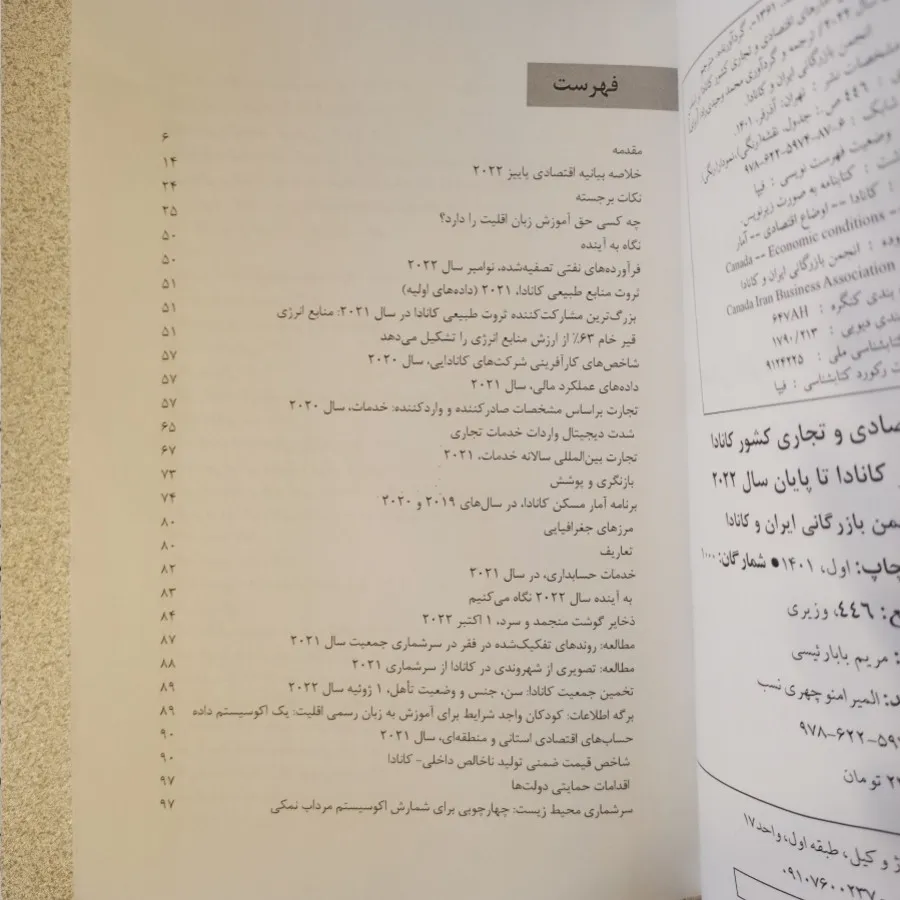 فهرست
مقدمه ۶
خلاصه بیانیه اقتصادی پاییز ۲۰۲۲ ۱۴
نکات برجسته ۲۴
چه کسی حق آموزش زبان اقلیت را دارد؟ ۲۵
نگاه به آینده ۵۰
فرآورده‌های نفتی تصفیه‌شده، نوامبر سال ۲۰۲۲ ۵۰
ثروت منابع طبیعی کانادا، ۲۰۲۱ (داده‌های اولیه) ۵۱
بزرگ‌ترین مشارکت‌کننده ثروت طبیعی کانادا در سال ۲۰۲۱: منابع انرژی ۵۱
قیر خام ۶۳٪ از ارزش منابع انرژی را تشکیل می‌دهد ۵۱
شاخص‌های کارآفرینی شرکت‌های کانادایی، سال ۲۰۲۰ ۵۷
داده‌های عملکرد مالی، سال ۲۰۲۱ ۵۷
تجارت براساس مشخصات صادرکننده و واردکننده: خدمات، سال ۲۰۲۰ ۵۷
شدت دیجیتال واردات خدمات تجاری ۶۵
تجارت بین‌المللی سالانه خدمات، ۲۰۲۱ ۶۷
بازنگری و پوشش ۷۳
برنامه آمار مسکن کانادا، در سال‌های ۲۰۱۹ و ۲۰۲۰ ۷۴
مرزهای جغرافیایی ۸۰
تعاریف ۸۰
خدمات حسابداری، در سال ۲۰۲۱ ۸۲
به آینده سال ۲۰۲۲ نگاه می‌کنیم ۸۳
ذخایر گوشت منجمد و سرد، ۱ اکتبر ۲۰۲۲ ۸۴
مطالعه: روندهای تفکیک‌شده در فقر در سرشماری جمعیت سال ۲۰۲۱ ۸۷
مطالعه: تصویری از شهروندی در کانادا از سرشماری ۲۰۲۱ ۸۸
تخمین جمعیت کانادا: سن، جنس و وضعیت تأهل، ۱ ژوئیه سال ۲۰۲۲ ۸۹
برگه اطلاعات: کودکان واجد شرایط برای آموزش به زبان رسمی اقلیت: یک اکوسیستم داده ۸۹
حساب‌های اقتصادی استانی و منطقه‌ای، سال ۲۰۲۱ ۹۰
شاخص قیمت ضمنی تولید ناخالص داخلی- کانادا ۹۰
اقدامات حمایتی دولت‌ها ۹۷
سرشماری محیط زیست: چهارچوبی برای شمارش اکوسیستم مرداب نمکی ۹۷
انجمن بازرگانی ایران و کانادا.
مشخصات نشر : تهران: آذرفر، ۱۴۰۱.
: ۴۴۶ ص.: جدول، نقشه(رنگی)، نمودار(رنگی)
شابک : ۹۷۸-۶۲۲-۵۹۷۴-۸۷-۶
وضعیت فهرست نویسی : فیپا
: کتابنامه به صورت زیرنویس.
: کانادا -- اوضاع اقتصادی -- آمار
Canada -- Economic conditions --
: انجمن بازرگانی ایران و کانادا
Canada Iran Business Association
بندی کنگره : ۶۴۷AH
بندی دیویی : ۱۷۹۰/۲۱۳
کتابشناسی ملی : ۹۱۲۴۲۲۵
رکورد کتابشناسی : فیپا
و تجاری کشور کانادا
کانادا تا پایان سال ۲۰۲۲
بازرگانی ایران و کانادا
چاپ: اول، ۱۴۰۱ • شمارگان: ۱۰۰۰
۴۴۶، وزیری
مریم بابارئیسی
المیرا منوچهری نسب
تومان
وکیل، طبقه اول، واحد۱۷
۰۹۱۰۷۶۰۰۲۳۷